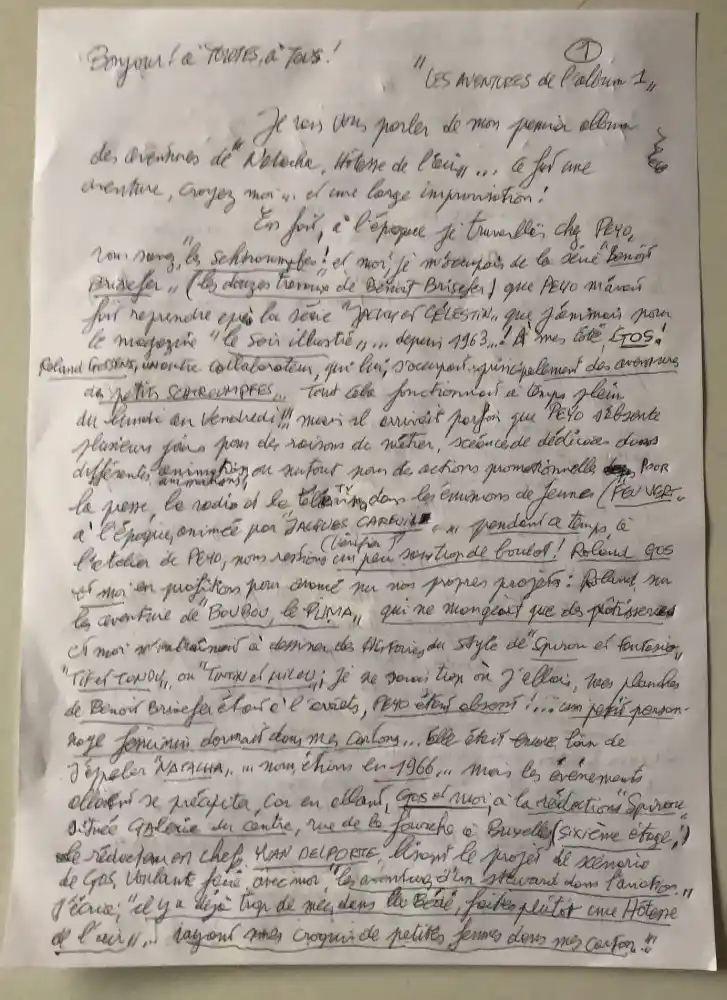 Bonjour! à "TOUTES, à Tous!
1
"LES AVENTURES de l'album 1"
Je vais vous parler de mon premier album
des aventures de "Natacha, Hôtesse de l'air"... ce fut une
aventure, croyez moi... et une large improvisation!
En fait, à l'époque je travaillais chez PEYO,
vous savez, "les schtroumpfs"! et moi, je m'occupais de la série "Benoit
Brisefer" (les douzes travaux de Benoit Brisefer) que PEYO m'avait
fait reprendre après la série "JACKY et CÉLESTIN" que j'animais pour
le magazine "le Soir illustré"... depuis 1963...! A mes côté GOS!
Roland Goossens, un autre collaborateur, qui lui, s'occupait principalement des aventures
des petits SCHTROUMPFS... Tout cela fonctionnait à temps plein
du lundi au Vendredi!!! mais il arrivait parfois que PEYO s'absente
plusieurs jours pour des raisons de métier, scéance de dédicaces dans
différentes animations ou surtout pour des actions promotionnelle POUR
la presse, la radio et la TV, dans les émissions de Jeunes (FEU VERT
à l'époque, animée par "JACQUES CAREUIL" pendant ce temps à
(Vérifier?)
l'atelier de PEYO, nous restions un peu sans trop de boulot! Roland GOS
et moi en profitions pour avancé sur nos propres projets: Roland sur
les aventure de "BOUBOU, le PUMA" qui ne mangeait que des pâtisseries
et moi m'entraînant à dessiner des Histoires du style de "Spirou et fantasio"
"TIF et TONDU" ou "TINTIN et MILOU"; je ne savais trop où j'allais, mes planches
de Benoit Brisefer étant à l'arrêts, PEYO étant absent!... un petit person-
nage féminin dormait dans mes cartons... Elle était encore loin de
s'appeler "NATACHA"... nous étions en 1966... mais les événements
allaient se précipiter, car en allant, Gos et moi, à la rédaction "Spirou"
située Galerie du centre, rue de la fourche à Bruxelles (sixième étage,)
le rédacteur en chef, YVAN DELPORTE, lisant le projet de scénario
de Gos, voulant faire avec moi, "les aventures d'un steward dans l'aviation"
s'écria; "il y a déjà trop de mec dans la série, faites plutôt une Hôtesse
de l'air"... voyant mes croquis de petites femmes dans mes carton!!!